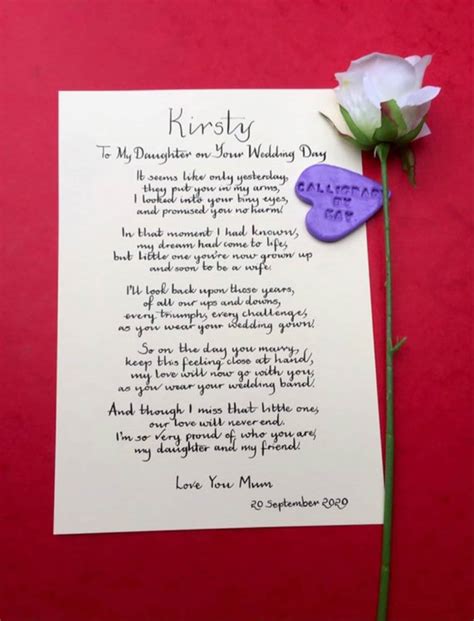 Kirsty
To My Daughter on Your Wedding Day
It seems like only yesterday,
they put you in my arms,
I looked into your tiny eyes,
and promised you no harm.
In that moment I had known,
my dream had come to life,
but little one you're now grown up
and soon to be a wife.
I'll look back upon those years,
of all our ups and downs,
every triumph, every challenge,
as you wear your wedding gown.
So on the day you marry,
keep this feeling close at hand,
my love will now go with you,
as you wear your wedding band.
And though I miss that little one,
our love will never end.
I'm so very proud of who you are,
my daughter and my friend.
Love You Mum
20 September 2020
CALLIGRAPHY
BY
KAY